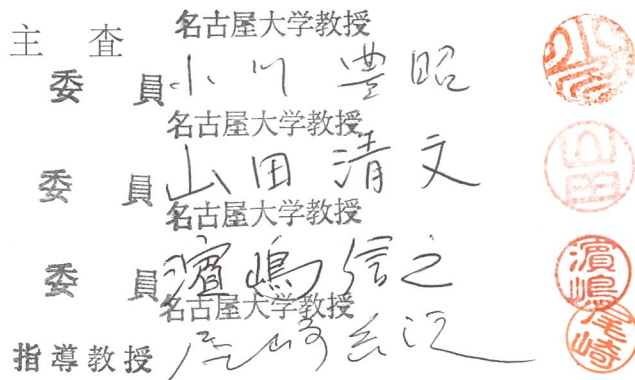 名古屋大学教授
主 査
委 員 小川 豊昭
名古屋大学教授
委 員 山田 清文
名古屋大学教授
委 員 濱嶋 信之
名古屋大学教授
指導教授 尾崎
山田
濱嶋
尾崎